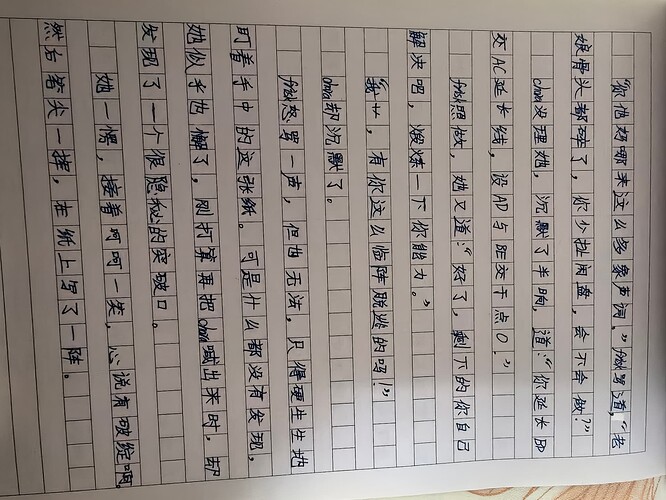 “你他妈哪来这么多象声词。”fhk骂道，“老
娘骨头都碎了，你少扯闲盘，会不会做？”
chaa没理她，沉默了半晌，道：“你延长BD
交AC延长线，设AD与BE交于点O。”
fhk照做，她又道：“好了，剩下的你自己
解决吧，煅炼一下你能力。”
“我艹，有你这么临阵脱逃的吗！”
chaa却沉默了。
fhk怒骂一声，但也无法，只得硬生生地
盯着手中的这张纸。可是什么都没有发现，
她似乎也懈了。刚打算再把chaa喊出来时，却
发现了一个很隐秘的突破口。
她一愣，接着呵呵一笑，心说有破绽啊，
然后笔尖一挥，在纸上写了一阵。